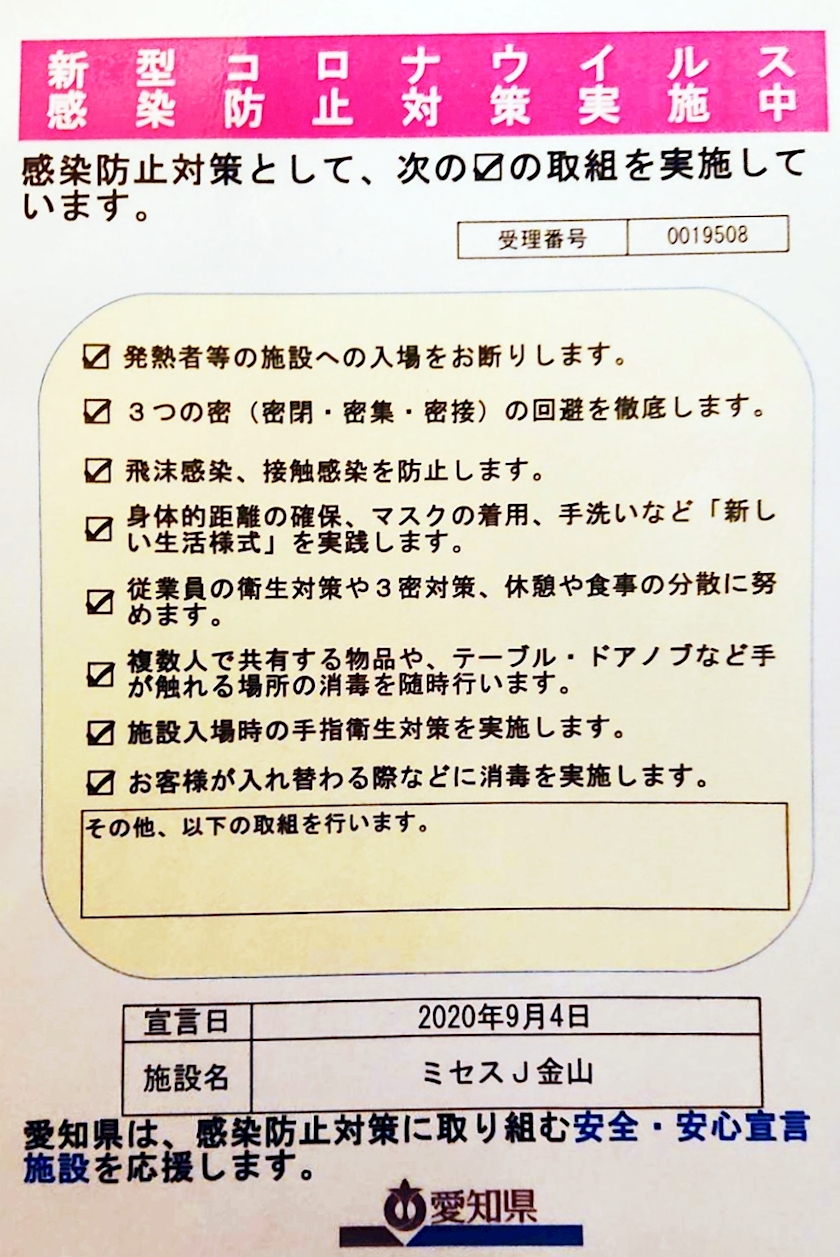 新型コロナウイルス
感染防止対策実施中
感染防止対策として、次の☑の取組を実施して
います。
受理番号 0019508
☑ 発熱者等の施設への入場をお断りします。
☑ 3つの密（密閉・密集・密接）の回避を徹底します。
☑ 飛沫感染、接触感染を防止します。
☑ 身体的距離の確保、マスクの着用、手洗いなど「新し
い生活様式」を実践します。
☑ 従業員の衛生対策や3密対策、休憩や食事の分散に努
めます。
☑ 複数人で共有する物品や、テーブル・ドアノブなど手
が触れる場所の消毒を随時行います。
☑ 施設入場時の手指衛生対策を実施します。
☑ お客様が入れ替わる際などに消毒を実施します。
その他、以下の取組を行います。
宣言日 2020年9月4日
施設名 ミセスJ金山
愛知県は、感染防止対策に取り組む安全・安心宣言
施設を応援します。
愛知県